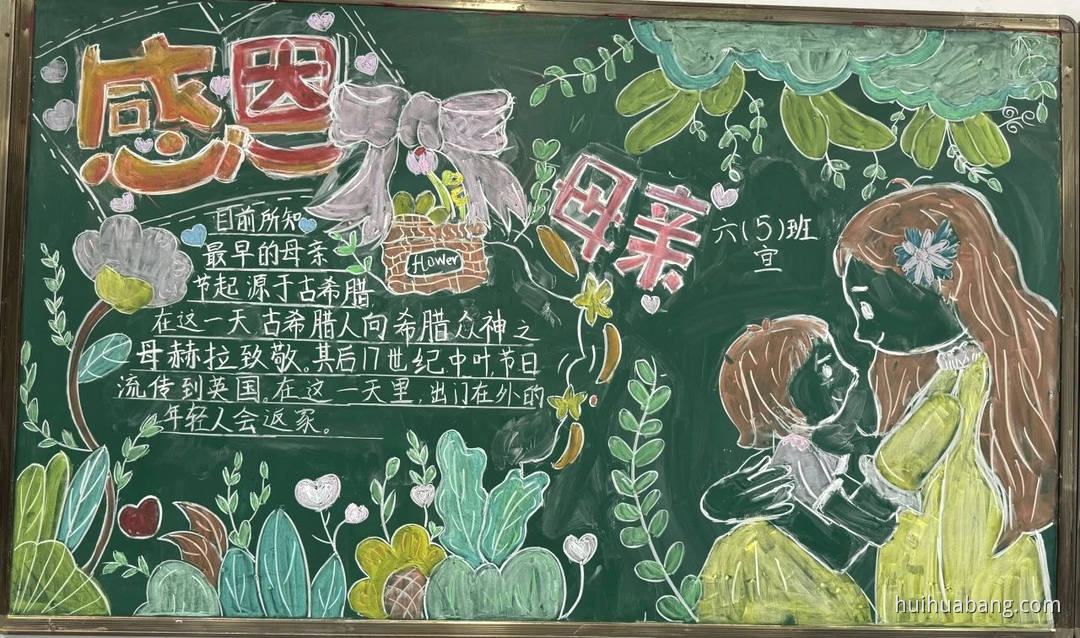 感恩
母亲
六(5)班
宣
Flower
目前所知
最早的母亲
节起源于古希腊
在这一天,古希腊人向希腊众神之
母赫拉致敬。其后17世纪中叶,节日
流传到英国,在这一天里,出门在外的
年轻人会返家。
huihuabang.com